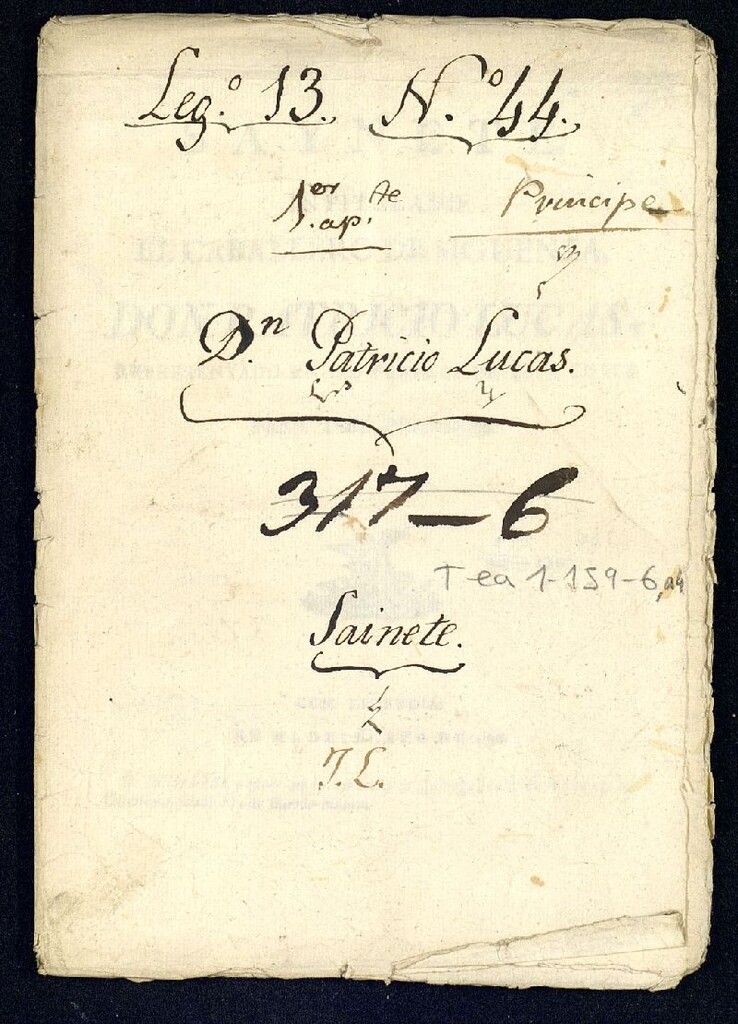 Leg.º 13. N.º 44.
1.er ap.te Principe
D.n Patricio Lucas.
317-6
Tea 1-159-6, a4
Sainete.